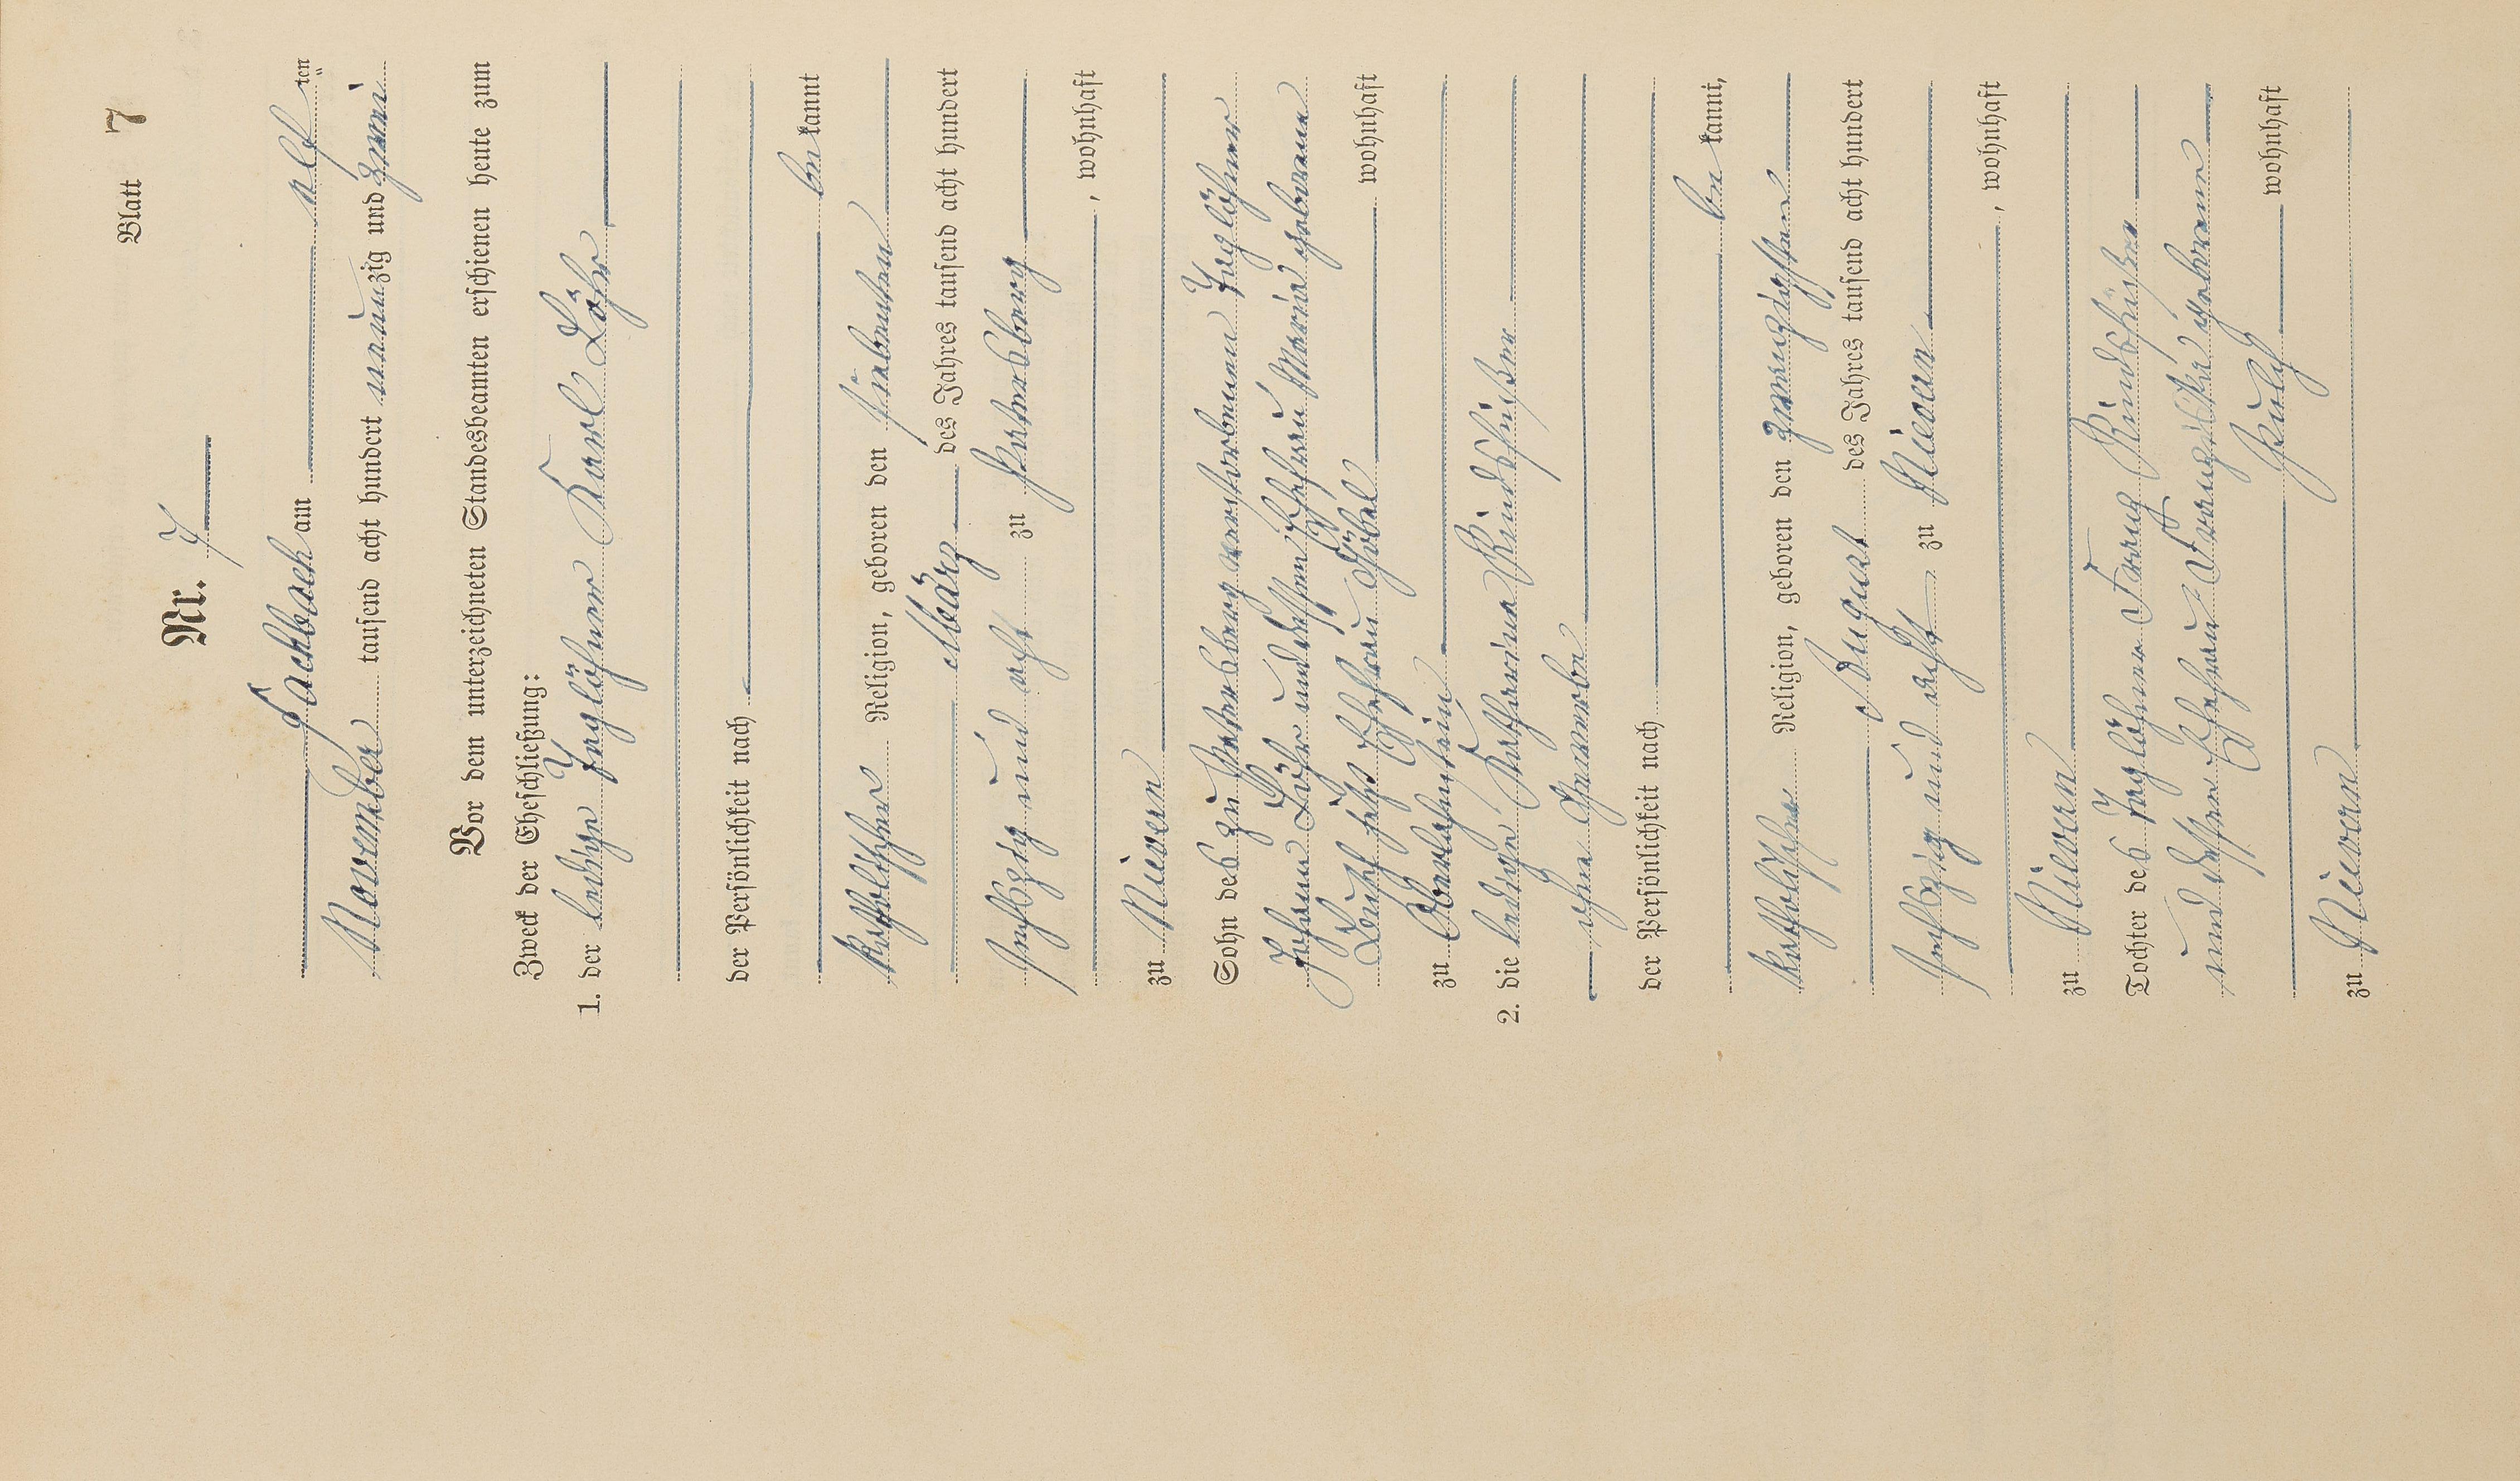 Blatt 7
Nr. 7
Fachbach am elf ten
November tausend acht hundert neunzig und zwei
Vor dem unterzeichneten Standesbeamten erschienen heute zum
Zweck der Eheschließung:
1. der ledige Taglöhner Karl Löhr
der Persönlichkeit nach
be kannt
katholischer Religion, geboren den siebenten
März des Jahres tausend acht hundert
sechszig und acht zu Patersberg
, wohnhaft
zu Nievern
Sohn des zu Patersberg verstorbenen Taglöhner
Johann Löhr und dessen Ehefrau Maria geborene
Ehefrau Göbel wohnhaft
zu Oberlahnstein
2. die ledige Katharina Rindsfüßer
ohne Gewerbe
der Persönlichkeit nach
be kannt,
katholischer Religion, geboren den zwanzigsten
August des Jahres tausend acht hundert
sechszig und acht zu Nievern
, wohnhaft
zu Nievern
Tochter des Taglöhner Franz Rindsfüßer
und dessen Ehefrau Franziska geborene
wohnhaft
zu Nievern